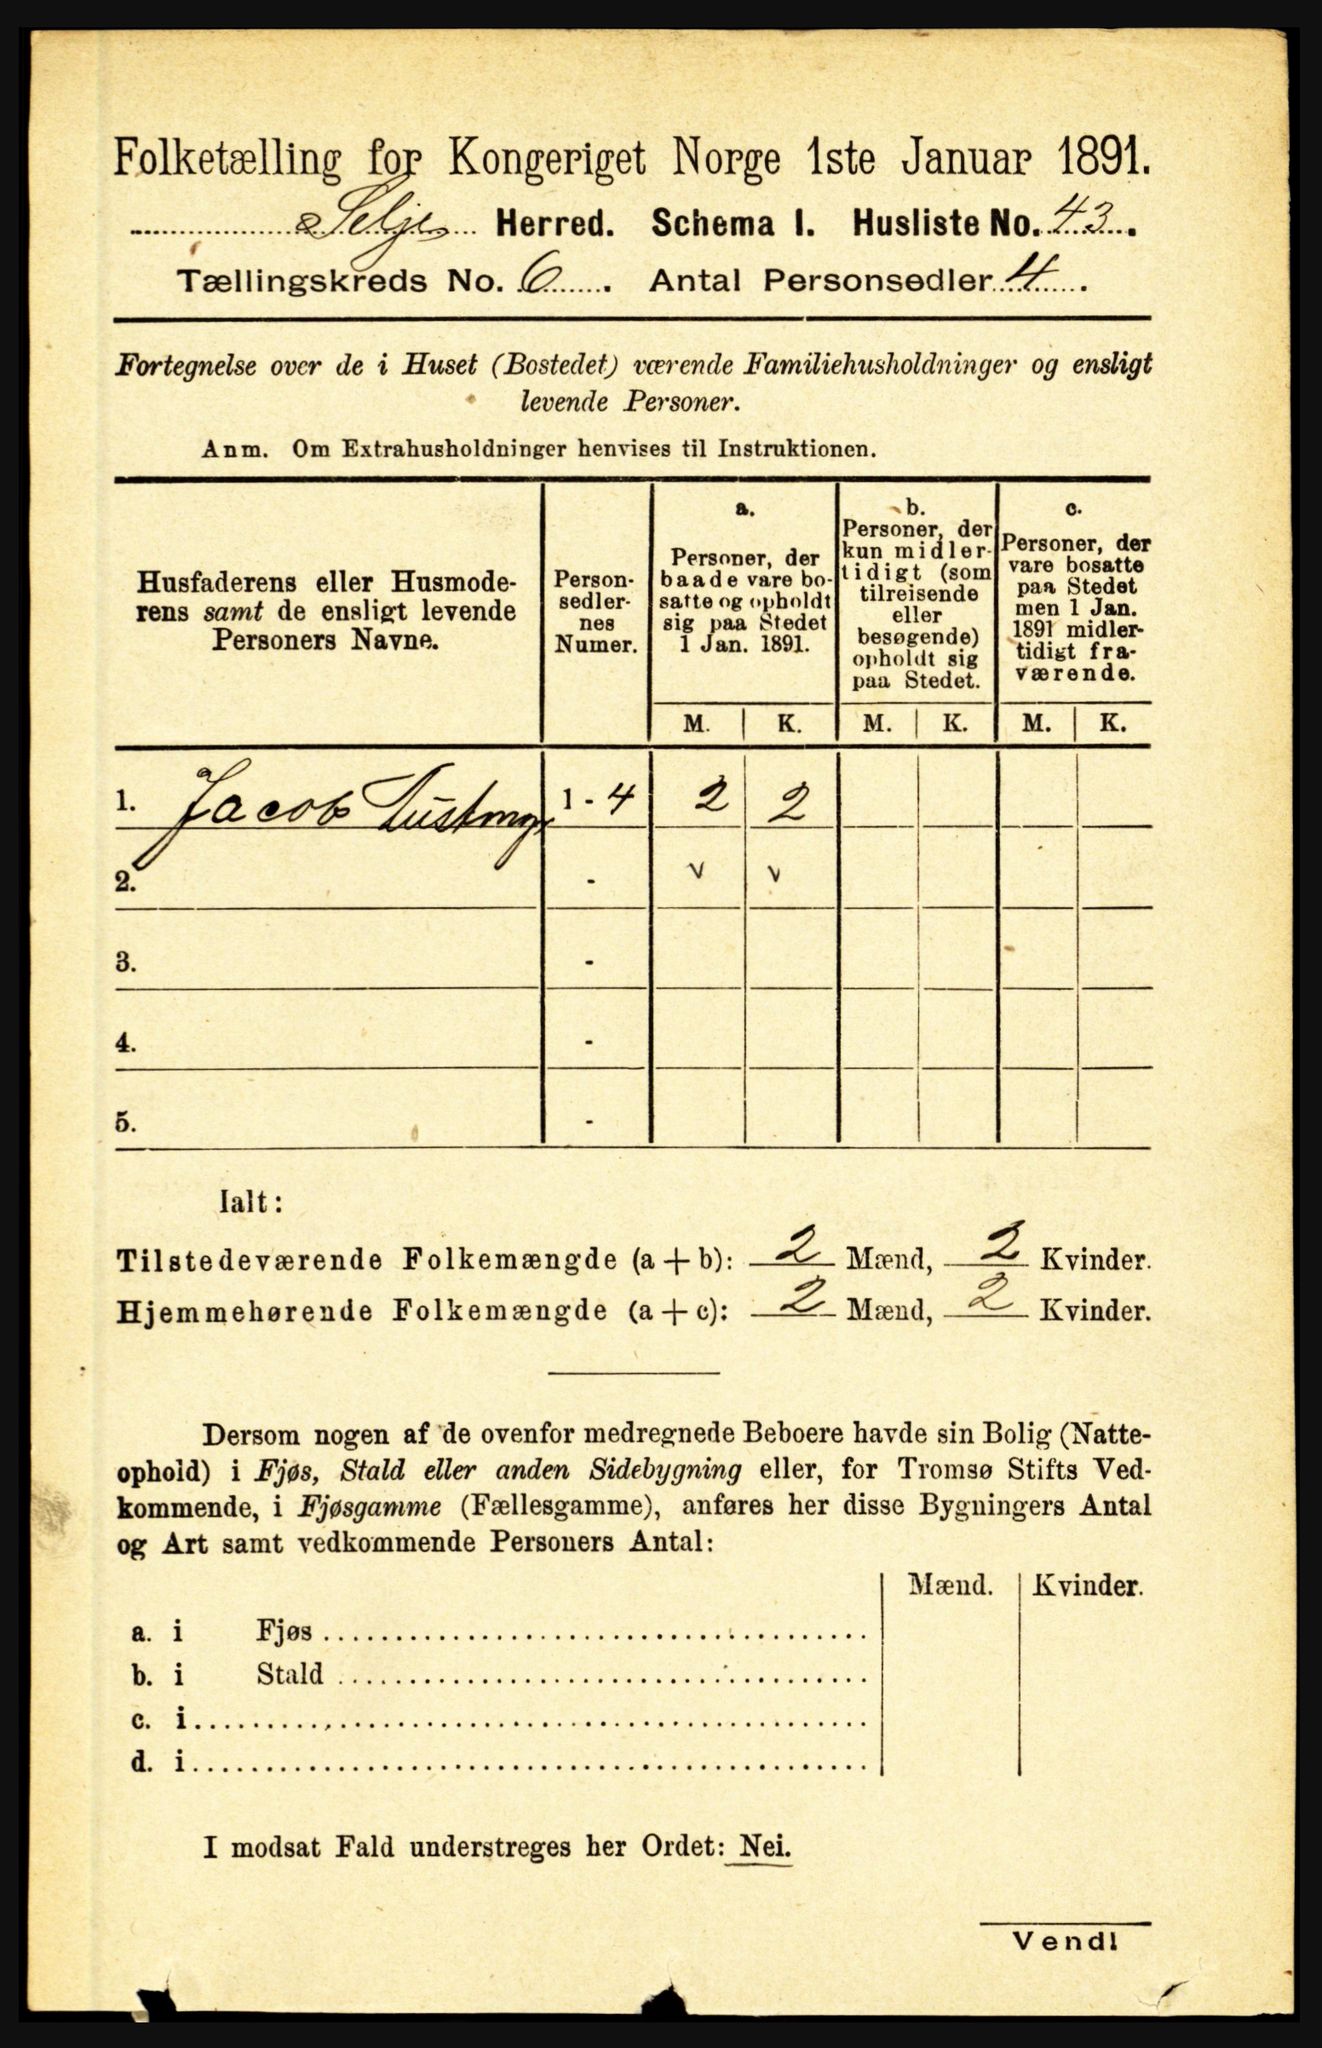 Folketælling for Kongeriget Norge 1ste Januar 1891.
Selje Herred. Schema I. Husliste No. 43.
Tællingskreds No. 6. Antal Personsedler 4.
Fortegnelse over de i Huset (Bostedet) værende Familiehusholdninger og ensligt
levende Personer.
Anm. Om Extrahusholdninger henvises til Instruktionen.
Husfaderens eller Husmode-
rens samt de ensligt levende
Personers Navne.
Person-
sedler-
nes
Numer.
a.
Personer, der
baade vare bo-
satte og opholdt
sig paa Stedet
1 Jan. 1891.
b.
Personer, der
kun midler-
tidigt (som
tilreisende
eller
besøgende)
opholdt sig
paa Stedet.
c.
Personer, der
vare bosatte
paa Stedet
men 1 Jan.
1891 midler-
tidigt fra-
værende.
M. K. M. K. M. K.
1. Jacob 1 - 4 2 2
2. - v v
3. -
4. -
5. -
Ialt:
Tilstedeværende Folkemængde (a + b): 2 Mænd, 2 Kvinder.
Hjemmehørende Folkemængde (a + c): 2 Mænd, 2 Kvinder.
Dersom nogen af de ovenfor medregnede Beboere havde sin Bolig (Natte-
ophold) i Fjøs, Stald eller anden Sidebygning eller, for Tromsø Stifts Ved-
kommende, i Fjøsgamme (Fællesgamme), anføres her disse Bygningers Antal
og Art samt vedkommende Personers Antal:
Mænd. Kvinder.
a. i Fjøs
b. i Stald
c. i
d. i
I modsat Fald understreges her Ordet: Nei.
Vend!